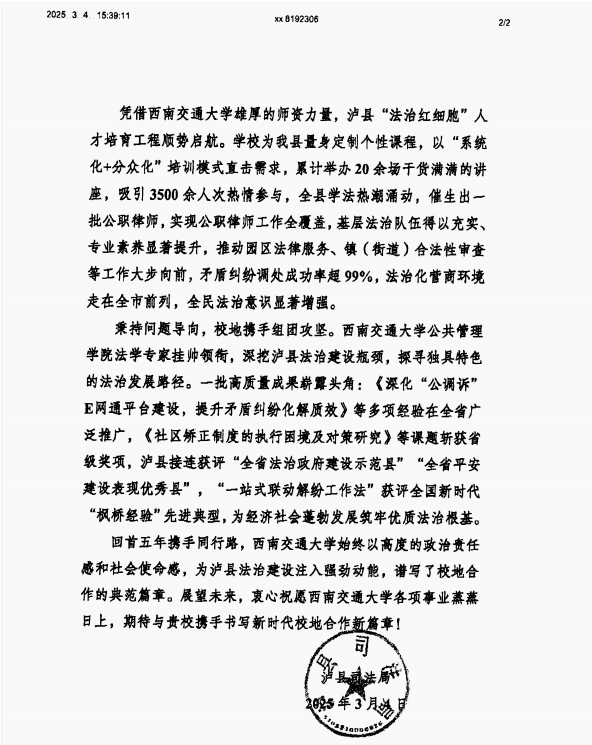 2025. 3. 4. 15:39:11
xx 8192306
2/2
凭借西南交通大学雄厚的师资力量，泸县“法治红细胞”人
才培育工程顺势启航。学校为我县量身定制个性课程，以“系统
化+分众化”培训模式直击需求，累计举办 20 余场干货满满的讲
座，吸引 3500 余人次热情参与，全县学法热潮涌动，催生出一
批公职律师，实现公职律师工作全覆盖，基层法治队伍得以充实、
专业素养显著提升，推动园区法律服务、镇（街道）合法性审查
等工作大步向前，矛盾纠纷调处成功率超 99%，法治化营商环境
走在全市前列，全民法治意识显著增强。
秉持问题导向，校地携手组团攻坚。西南交通大学公共管理
学院法学专家挂帅领衔，深挖泸县法治建设瓶颈，探寻独具特色
的法治发展路径。一批高质量成果崭露头角：《深化“公调诉”
E网通平台建设，提升矛盾纠纷化解质效》等多项经验在全省广
泛推广，《社区矫正制度的执行困境及对策研究》等课题斩获省
级奖项，泸县接连获评“全省法治政府建设示范县”“全省平安
建设表现优秀县”，“一站式联动解纷工作法”获评全国新时代
“枫桥经验”先进典型，为经济社会蓬勃发展筑牢优质法治根基。
回首五年携手同行路，西南交通大学始终以高度的政治责任
感和社会使命感，为泸县法治建设注入强劲动能，谱写了校地合
作的典范篇章。展望未来，衷心祝愿西南交通大学各项事业蒸蒸
日上，期待与贵校携手书写新时代校地合作新篇章！
泸县司法局
2025 年 3 月 日